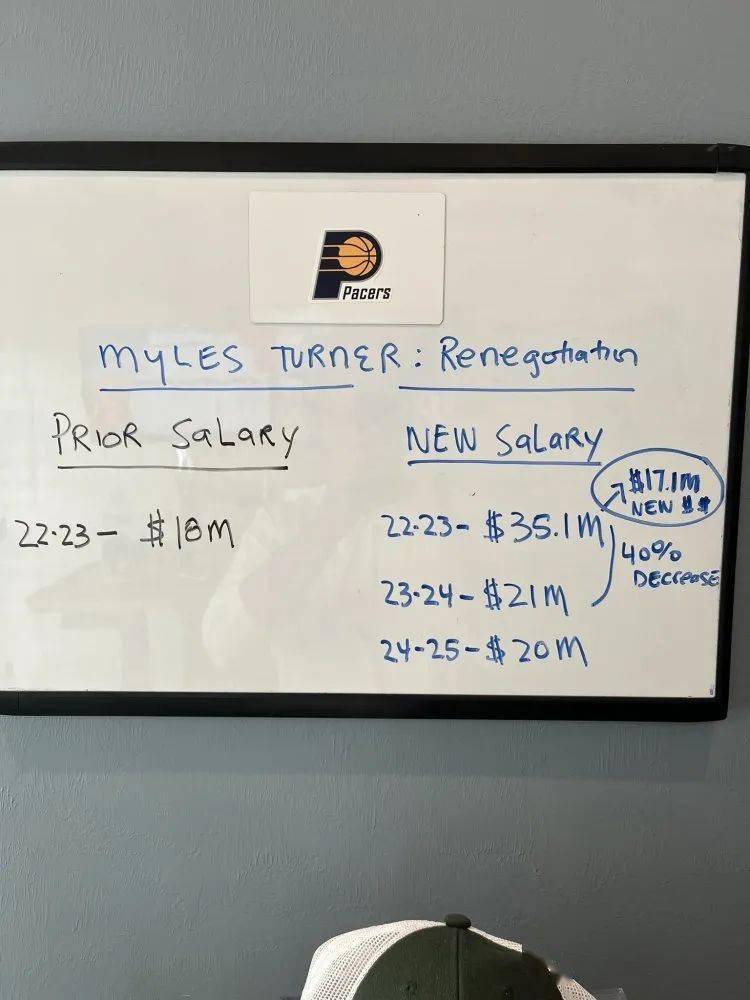 Pacers
MYLES TURNER: Renegotiation
PRIOR SALARY
NEW SALARY
$17.1M
NEW $$
22.23- $18M
22.23- $35.1M
40%
DECREASE
23.24- $21M
24-25- $20M